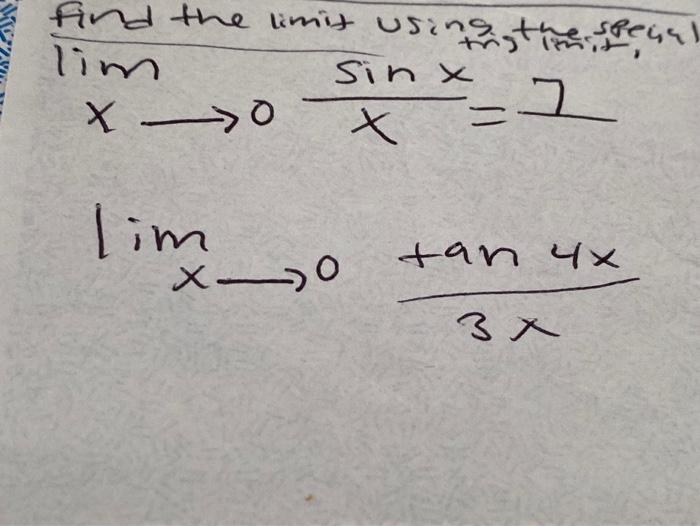 find the limit using the special
trig limit,
lim sin x
x → 0 x = 1
lim tan 4x
x → 0 3x